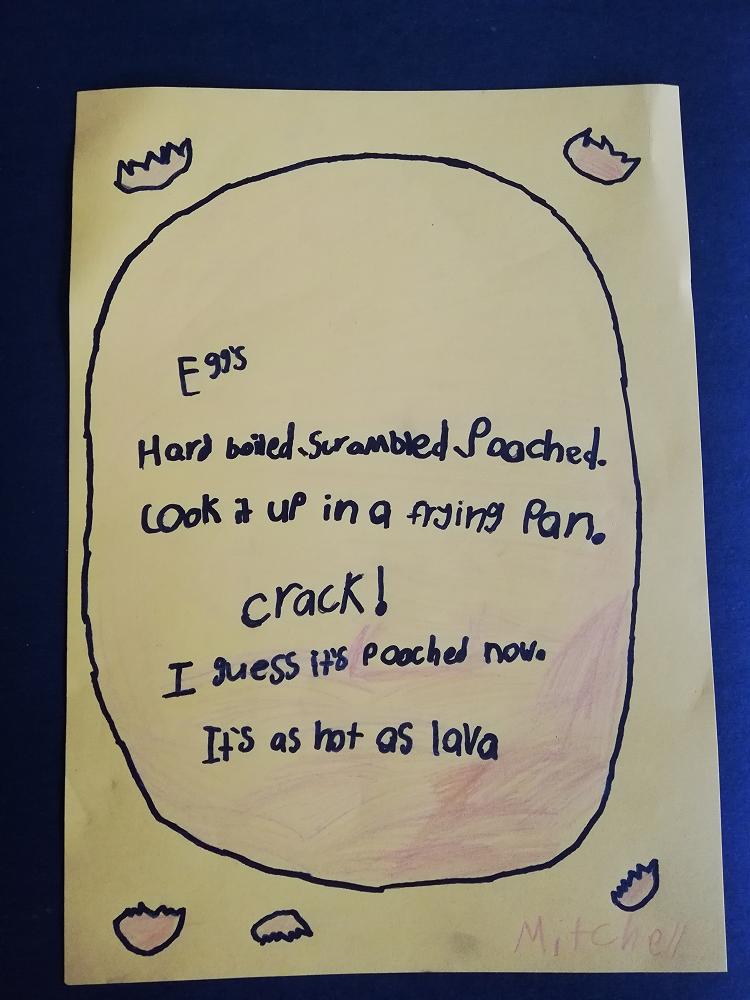 Egg's
Hard boiled, Scrambled, Pooched.
Cook it up in a frying Pan.
crack!
I guess it's Pooched now.
It's as hot as lava
Mitchell